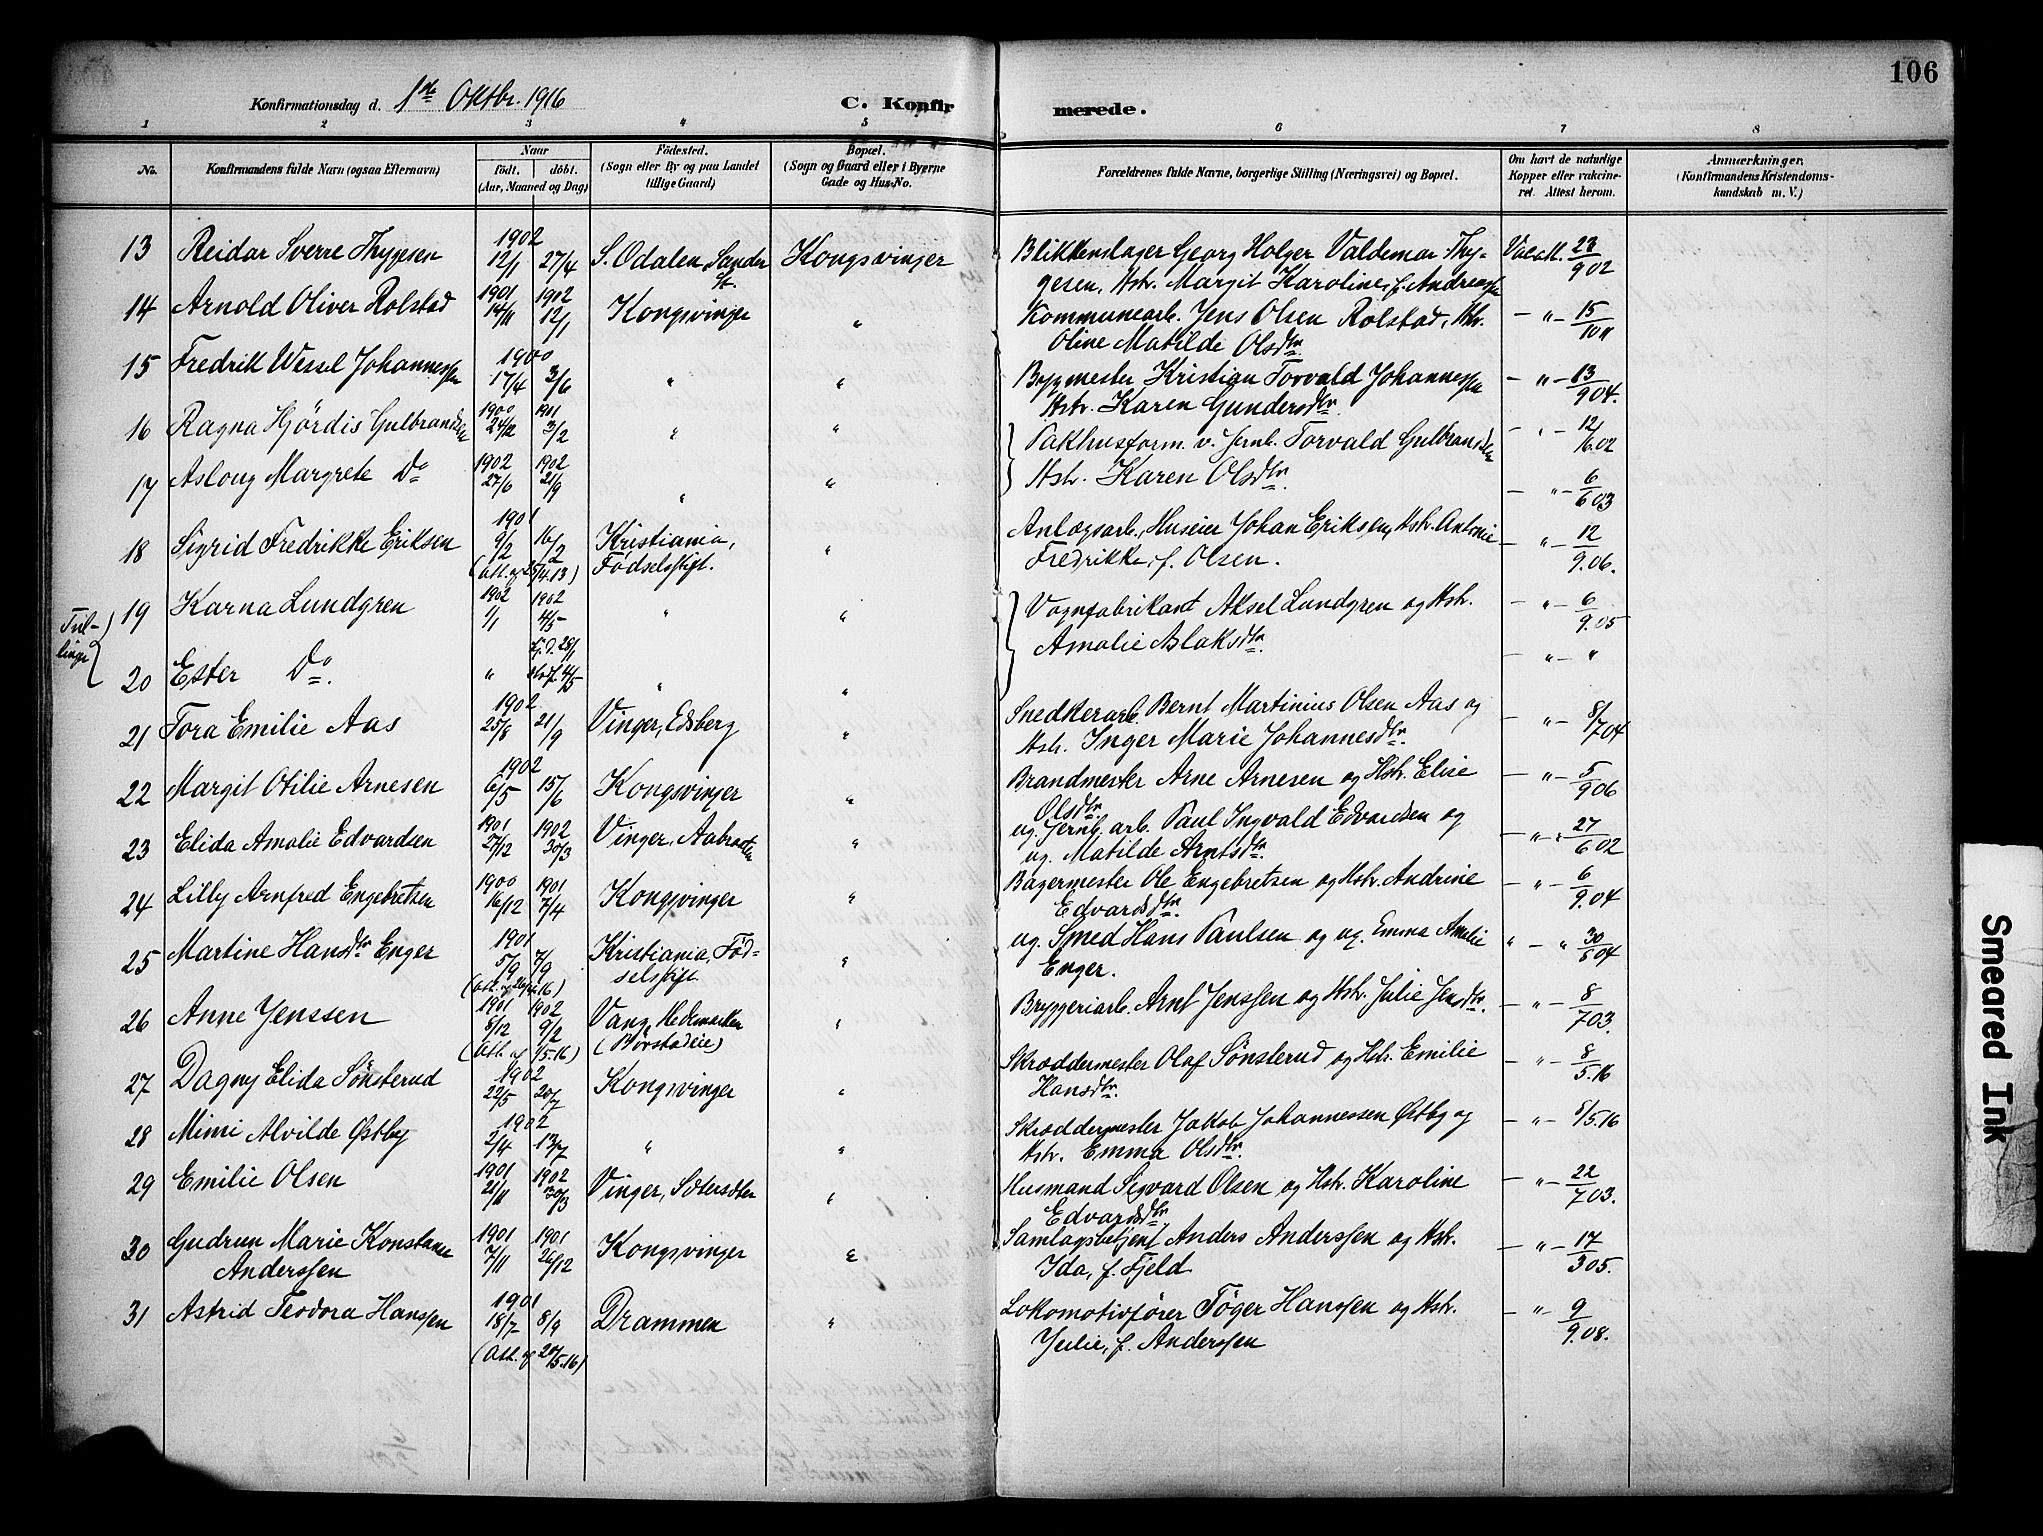 106
Konfirmationsdag d. 1ste Oktbr. 1916 C. Konfirmerede.
1 2 3 4 5 6 7 8
No. Konfirmandens fulde Navn (ogsaa Efternavn) Naar født. døbt. (Aar, Maaned og Dag) Fødested. (Sogn eller By og paa Landet tillige Gaard) Bopæl. (Sogn og Gaard eller i Byerne Gade og Hus-No. Forældrenes fulde Navne, borgerlige Stilling (Næringsvei) og Bopæl. Om havt de naturlige Kopper eller vakcineret. Attest herom. Anmærkninger. (Konfirmandens Kristendomskundskab m. V.)
13 Reidar Sverre Thygesen 1902 12/1 27/4 S. Odalen, Sander St. Kongsvinger Blikkenslager Georg Holger Valdemar Thygesen, Hstr. Margit Karoline, f. Andreassen Vacat. 23/902
14 Arnold Oliver Rolstad 1901 14/11 1902 12/1 Kongsvinger " Kommunearb. Jens Olsen Rolstad, Hstr. Oline Matilde Olsdtr. — " — 15/1011
15 Fredrik Wessel Johannessen 1900 17/4 3/6 " " Bygmester Kristian Torvald Johannessen Hstr. Karen Gundersdtr. — " — 13/904.
16 Ragna Hjørdis Gulbrandsen 1900 24/12 1901 3/2 " " Pakhusform. v. Jernb. Torvald Gulbrandsen — " — 12/6.02
17 Asloug Margrete Do 1902 27/6 1902 21/9 " " Hstr. Karen Olsdtr. — " — 6/603
18 Sigrid Fredrikke Eriksen 1901 9/2 16/2 (Att. af 25/4.13) Kristiania, Fødselsstift. " Anlægsarb., Huseier Johan Eriksen, Hstr. Antonie Fredrikke, f. Olsen. — " — 12/9.06.
Tvillinger
19 Karna Lundgren 1902 1/1 1902 4/5 " " Vognfabrikant Aksel Lundgren og Hstr. — " — 6/9.05
20 Ester Do. " Hj. d. 28/1 4/5 " " Amalie Aslaksdtr. — " — "
21 Tora Emilie Aas 1902 25/8 21/9 Vinger, Edsberg " Snedkerarb. Bernt Martinius Olsen Aas og Hstr. Inger Marie Johannesdtr. — " — 8/704
22 Margit Otilie Arnesen 1902 6/5 15/6 Kongsvinger " Brandmester Arne Arnesen og Hstr. Elise Olsdtr. — " — 5/906
23 Elida Amalie Edvardsen 1901 27/12 1902 30/3 Vinger, Aabraaten " ug. Jernb. arb. Paul Ingvald Edvardsen og ug. Matilde Arntsdtr. — " — 27/602
24 Lilly Arnfred Engebretsen 1900 16/12 1901 7/4 Kongsvinger " Bagermester Ole Engebretsen og Hstr. Andrine Edvardsdtr. — " — 6/9.04
25 Martine Hansdtr. Enger 1901 5/9 7/9 Kristiania, Fødselsstift " ug. Smed Hans Paulsen og ug. Emma Amalie Enger. " — " 30/604
26 Anne Jenssen 1901 8/12 1902 9/2 (Att. af 1/5.16) Vang, Hedemarken (Børstadeie) " Bryggeriarb. Arnt Jenssen og Hstr. Julie Jensdtr. — " — 8/703.
27 Dagny Elida Sønsterud 1902 22/5 20/7 Kongsvinger " Skræddermester Olaf Sønsterud og Hstr. Emilie Hansdtr. — " — 8/5.16
28 Mimi Alvilde Østby 1902 2/4 13/7 " " Skræddermester Jakob Johannessen Østby og Hstr. Emma Olsdtr. — " — 8/5.16
29 Emilie Olsen 1901 21/11 1902 30/3 Vinger, Sætersæter " Husmand Sigvard Olsen og Hstr. Karoline Edvardsdtr. — " — 22/703.
30 Gudrun Marie Konstanse Anderssen 1901 7/11 1901 26/12 Kongsvinger " Samlagsbetjent Anders Anderssen og Hstr. Ida, f. Fjeld — " — 17/305.
31 Astrid Teodora Hanssen 1901 18/7 8/9 (Att. af 20/5.16) Drammen " Lokomotivfører Tøger Hanssen og Hstr. Julie, f. Anderssen — " — 9/9.08.
Smeared Ink